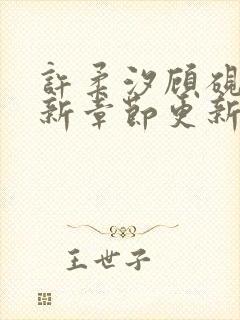 許柔汐顧硯
新章節更新
王世子